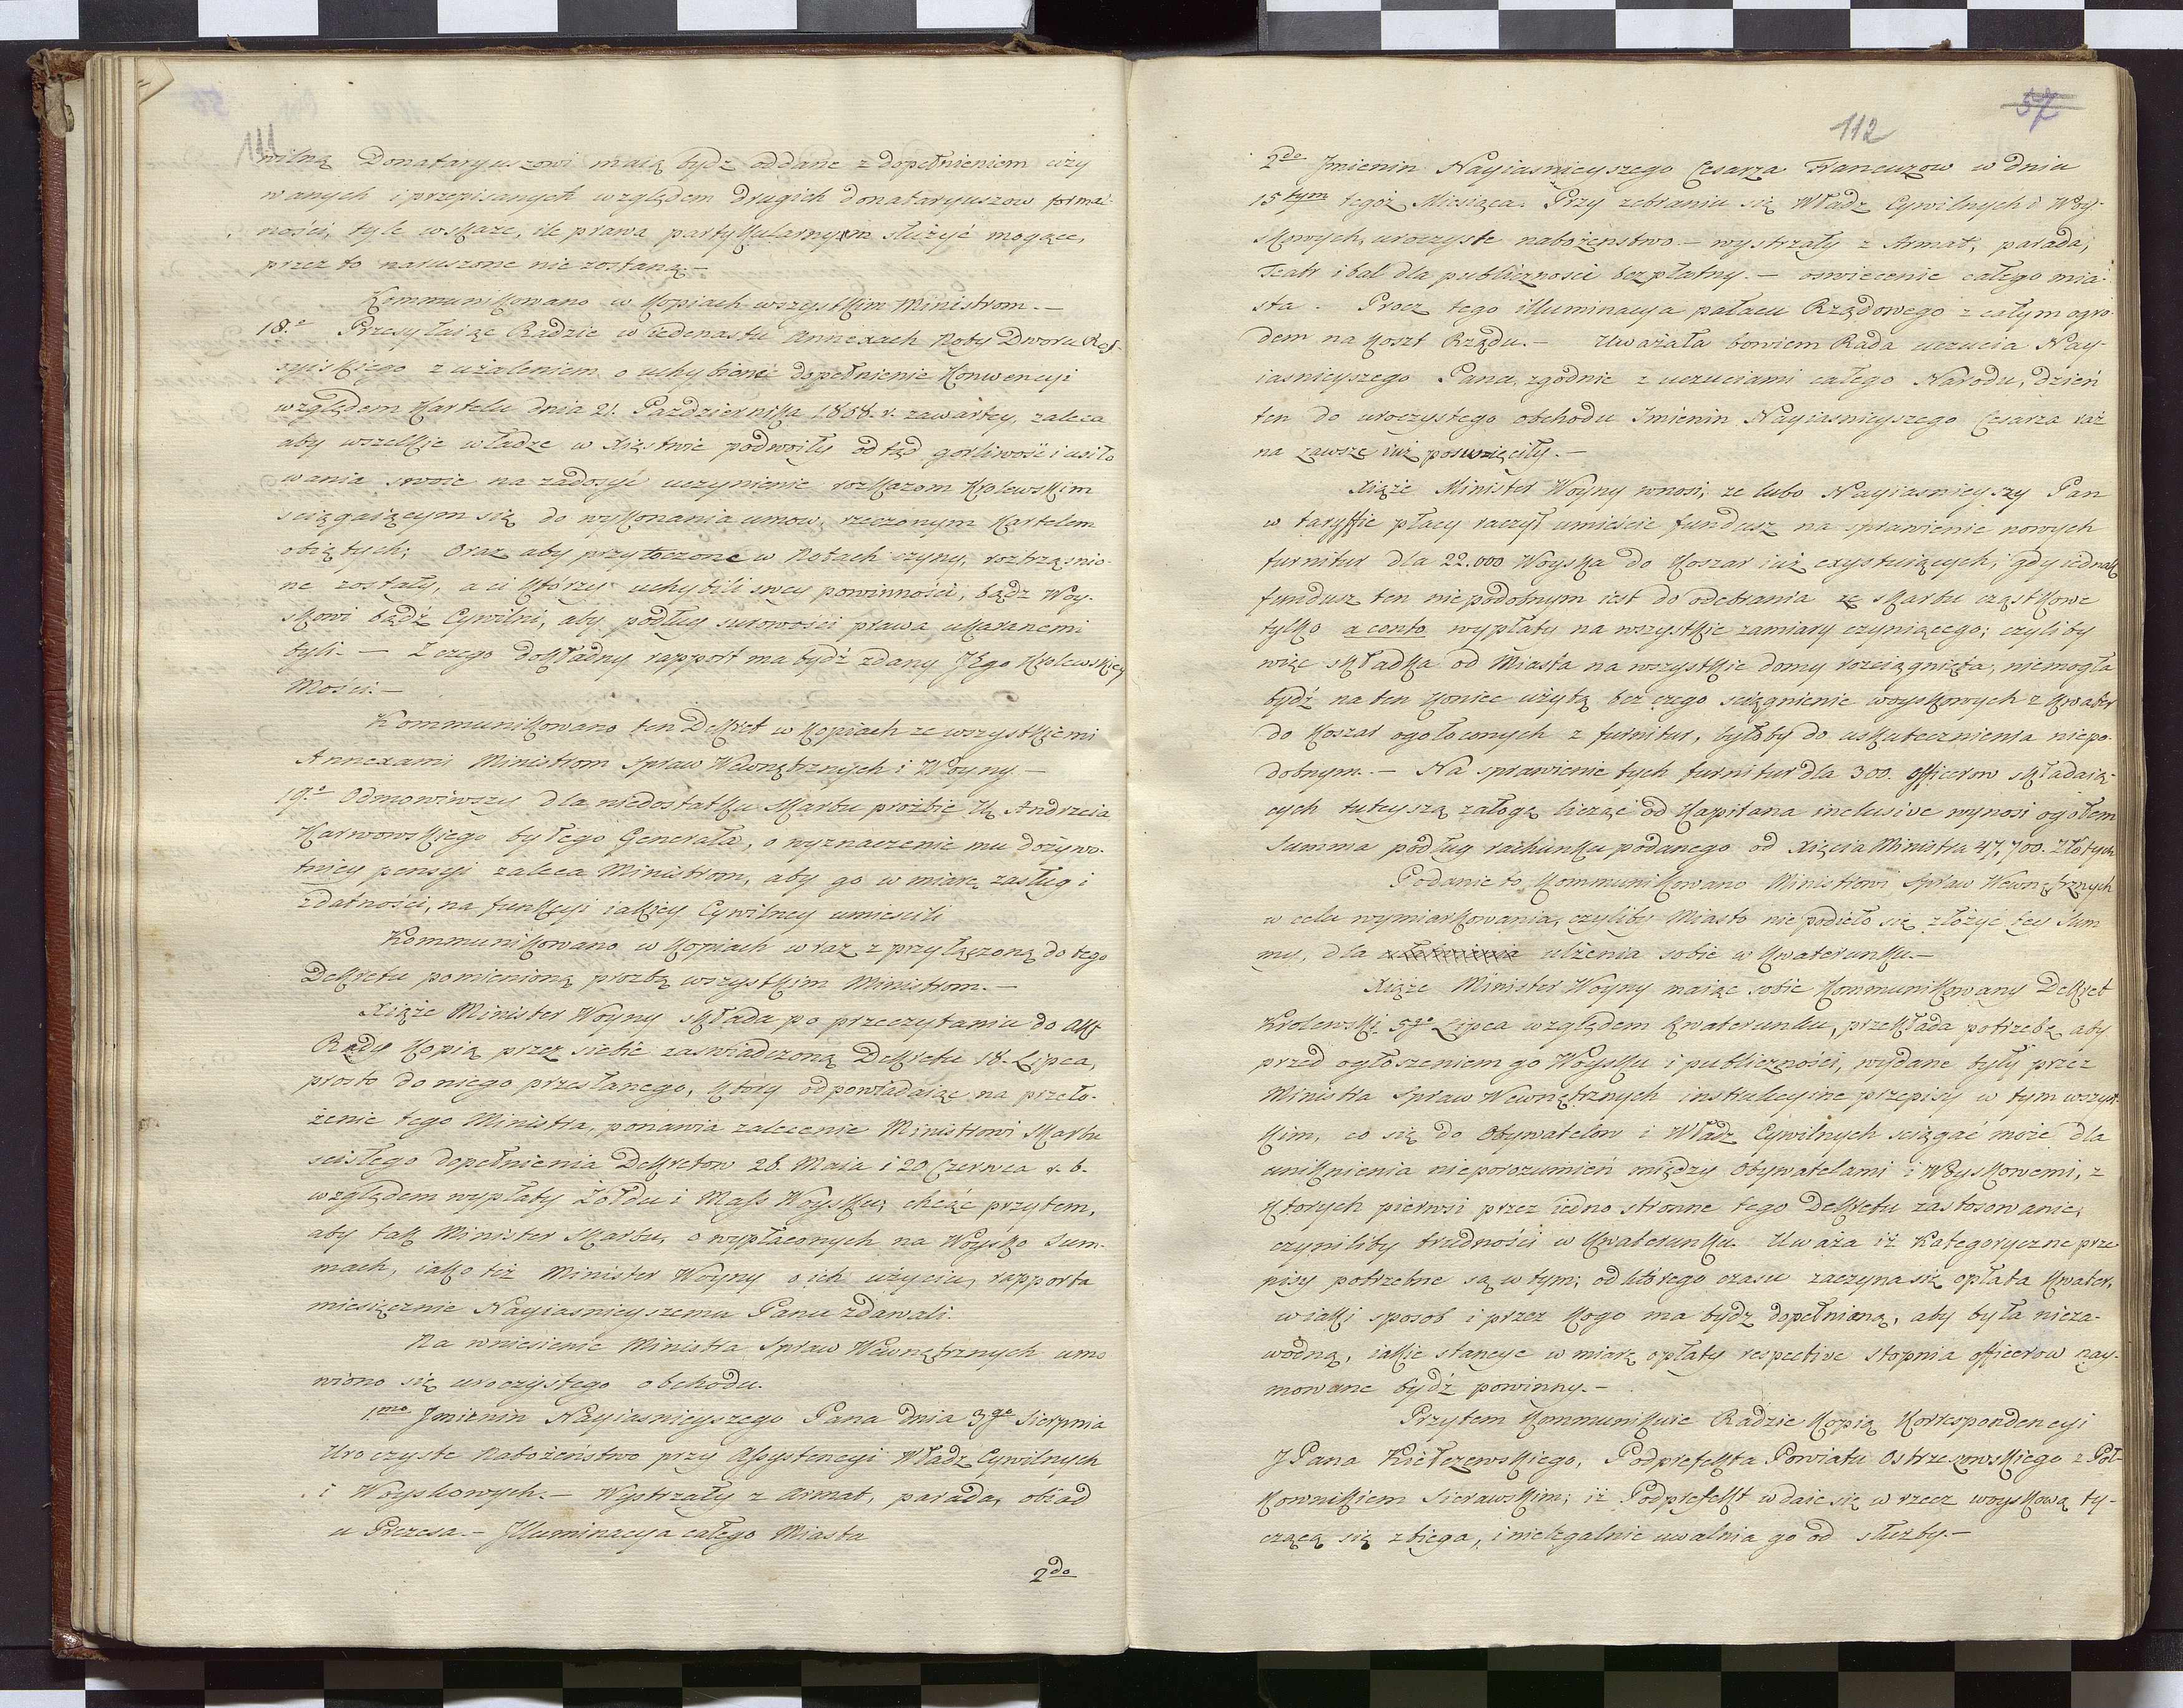 111
wilną Donataryuszowi maią bydz oddane z dopełnieniem uży
wanych i przepisanych względem drugich donataryuszow formal-
ności, tyle wskaże, ile prawa partykularnym służyć mogące,
przez to naruszone nie zostaną.—
Kommunikowano w kopiach wszystkim Ministrom.—
18.o Przesyłaiąc Radzie w iedenastu Annexach Noty Dworu Ros-
syiskiego z użaleniem o uchybione dopełnienie Konwencyi
względem Kartelu dnia 21. Pazdziernika 1808. r. zawartey, zaleca
aby wszelkie władze w Xięstwie podwoiły odtąd gorliwość i usiło
wania swoie na zadosyć uczynienie rozkazom Krolewskim
sciągaiącym się do wykonania umow, rzeczonym Kartelem
obiętych; Oraz aby przytoczone w Notach czyny, roztrząsnio-
ne zostały, a ci którzy uchybili swey powinności, bądz Woy-
skowi bądź Cywilni, aby podług surowości prawa ukaranemi
byli.— Z czego dokładny rapport ma bydź zdany JKgo Krolewskiey
Mości.—
Kommunikowano ten Dekret w kopiach ze wszystkiemi
Annexami Ministrom Spraw Wewnętrznych i Woyny.—
19.o Odmowiwszy dla niedostatku Skarbu prozbie Ur. Andrzeia
Karwowskiego byłego Generała, o wyznaczenie mu dożywo-
tniey pensyi zaleca Ministrom, aby go w miarę zasług i
zdatności, na funkcyi iakiey Cywilney umiescili
Kommunikowano w kopiach wraz z przyłączoną do tego
Dekretu pomienioną prozbą wszystkim Ministrom.—
Xiąże Minister Woyny składa po przeczytaniu do Akt
Rady kopią przez siebie zaswiadczoną Dekretu 18. Lipca,
prosto do niego przesłanego, który odpowiadaiąc na przeło-
żenie tego Ministra, ponawia zalecenie Ministrowi Skarbu
scisłego dopełnienia Dekretow 26. Maia i 20 Czerwca r. b.
względem wypłaty Żołdu i Mass Woysku; chcąc przytem,
aby tak Minister Skarbu, o wypłaconych na Woysko Sum-
mach, iako też Minister Woyny o ich użyciu, rapporta
miesięcznie Nayiasnieyszemu Panu zdawali.
Na wniesienie Ministra Spraw Wewnętrznych umo
wiono się uroczystego obchodu.
1.mo Jmienin Nayiasnieyszego Pana dnia 3go Sierpnia
Uroczyste Nabożeństwo przy Assystencyi Władz Cywilnych
i Woyskowych.— Wystrzały z Armat, parada, obiad
u Prezesa.— Jlluminacya całego Miasta
2do
57
112
2do Jmienin Nayiasnieyszego Cesarza Francuzow w dniu
15tym tegoż Miesiąca. Przy zebraniu się Władz Cywilnych i Woy-
skowych, uroczyste nabożenstwo — wystrzały z Armat, parada,
Teatr i bal dla publiczności bezpłatny.— oswiecenie całego mia-
sta. Procz tego illuminacya pałacu Rządowego z całym ogro-
dem na koszt Rządu.— Uważała bowiem Rada uczucia Nay-
iasnieyszego Pana, zgodnie z uczuciami całego Narodu, dzień
ten do uroczystego obchodu Jmienin Nayiasnieyszego Cesarza raz
na zawsze iuż poswięciły.—
Xiąże Minister Woyny wnosi, że lubo Nayiasnieyszy Pan
w taryffie płacy raczył umieścić fundusz na sprawienie nowych
furnitur dla 22.000 Woyska do koszar iuż exystuiących; gdy iednak
fundusz ten niepodobnym iest do odebrania ze skarbu cząstkowe
tylko a conto wypłaty na wszystkie zamiary czyniącego; czyliby
więc składka od Miasta na wszystkie domy rozciągnięta, niemogła
bydź na ten koniec użytą bez czego sciągnienie woyskowych z kwater
do koszar ogołoconych z furnitur, byłoby do uskutecznienia niepo-
dobnym.— Na sprawienie tych furnitur dla 300. officerow składaią-
cych tuteyszą załogę licząc od Kapitana inclusive wynosi ogołem
Summa podług rachunku podanego od Xięcia Ministra 47,700. Złotych
Podanie to kommunikowano Ministrowi Spraw Wewnętrznych
w celu wymiarkowania, czyliby Miasto niepodieło się złożyć tey Sum
my, dla ulżenia sobie w kwaterunku.—
Xiąże Minister Woyny maiąc sobie kommunikowany Dekret
Krolewski 5go Lipca względem kwaterunku, przekłada potrzebę aby
przed ogłoszeniem go Woysku i publiczności, wydane były przez
Ministra Spraw Wewnętrznych instrukcyine przepisy w tym wszyst-
kim, co się do Obywatelow i Władz Cywilnych sciągać może dla
uniknienia nieporozumień między Obywatelami i Woyskowemi, z
ktorych pierwsi przez iednostronne tego Dekretu zastosowanie,
czyniliby trudności w kwaterunku. Uważa iż Kategoryczne prze
pisy potrzebne są w tym; od którego czasu zaczyna się opłata kwater,
w iaki sposob i przez kogo ma bydz dopełnioną, aby była nieza-
wodną, iakie stancye w miarę opłaty respective stopnia officerow nay-
mowane bydź powinny.—
Przytem kommunikuie Radzie kopią korrespondencyi
J Pana Kiełczewskiego, Podprefekta Powiatu Ostrzeszowskiego z Puł-
kownikiem Sierawskim; iż Podprefekt wdaie się w rzecz woyskową ty-
czącą się zbiega, i nielegalnie uwalnia go od służby.—